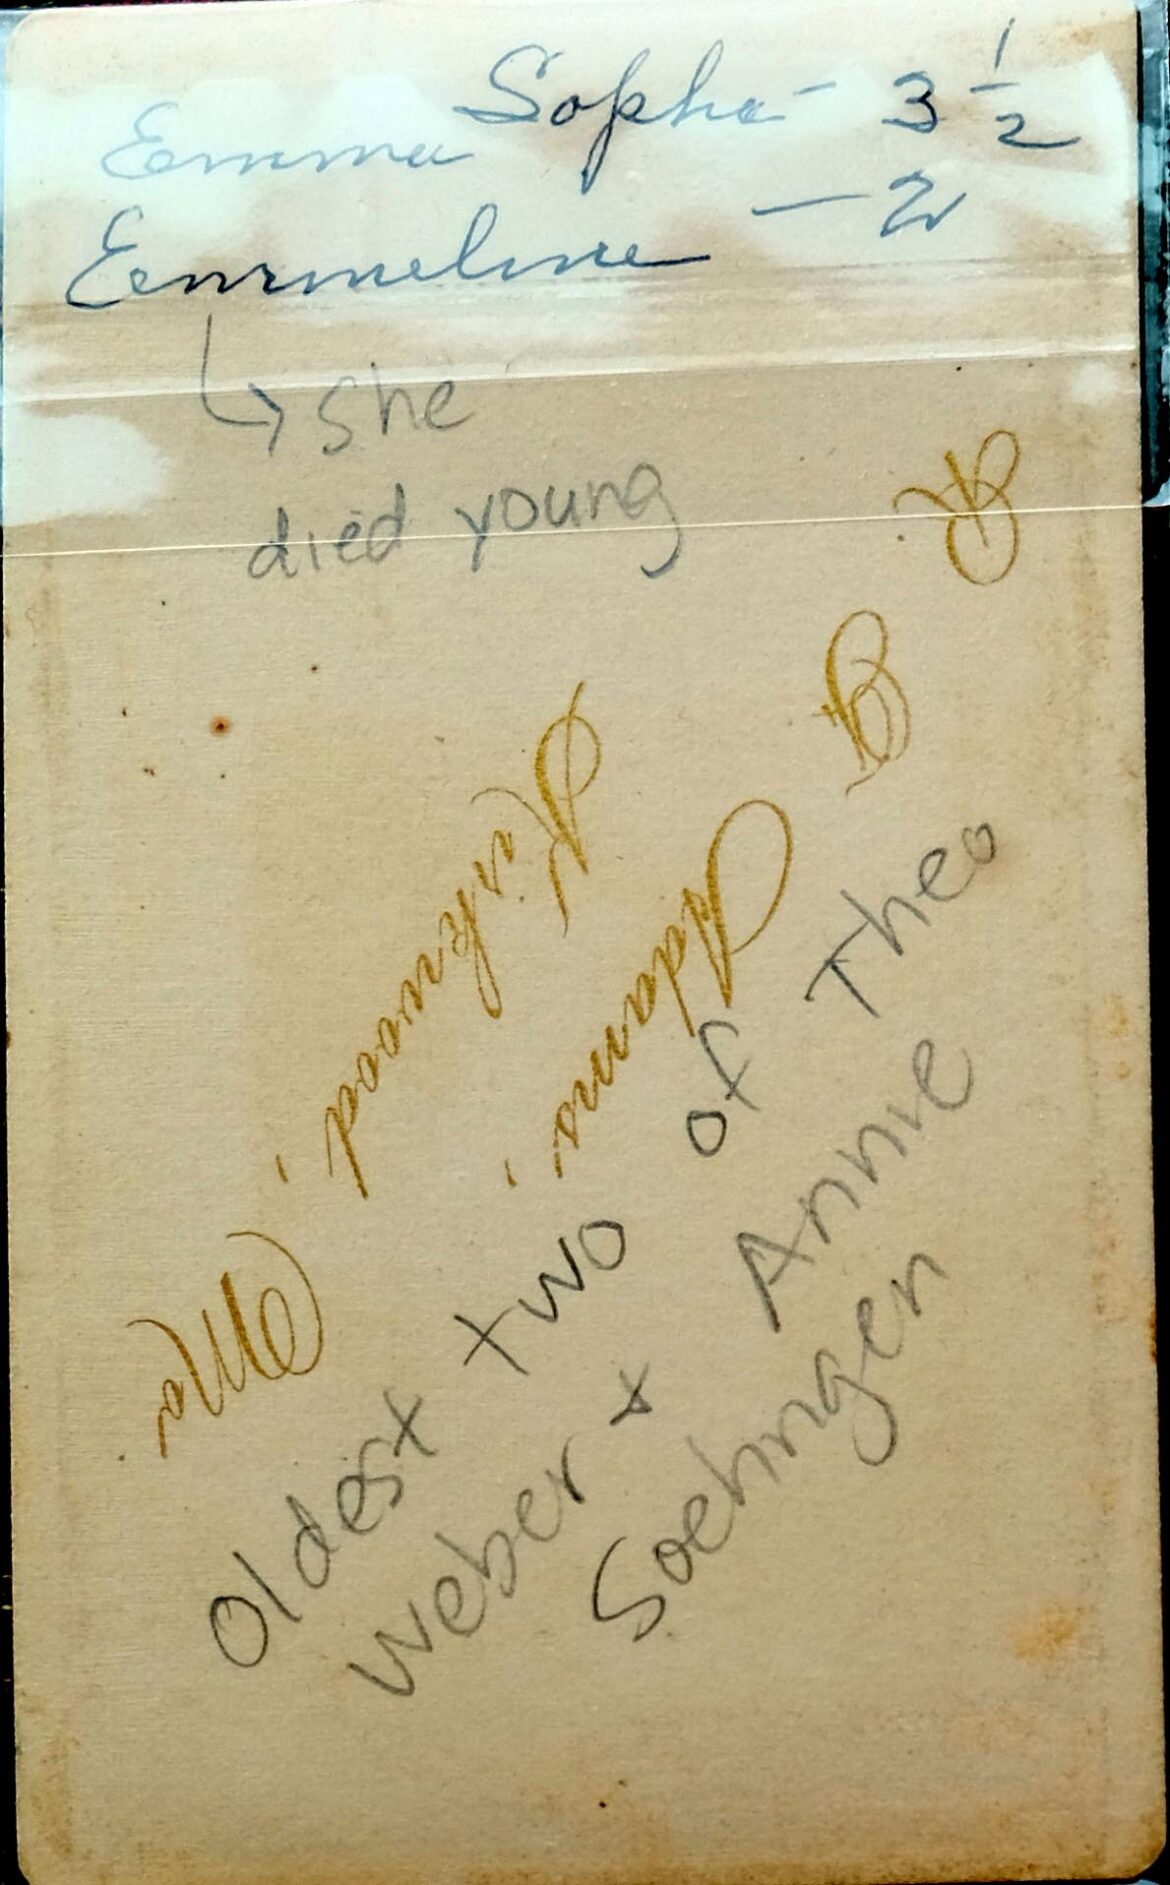 Emma Sopha - 3 1/2
Emmeline - 2
↳ she
died young
Adams,
Kirkwood, Mo
Oldest two of Theo
Weber + Annie
Soehngen